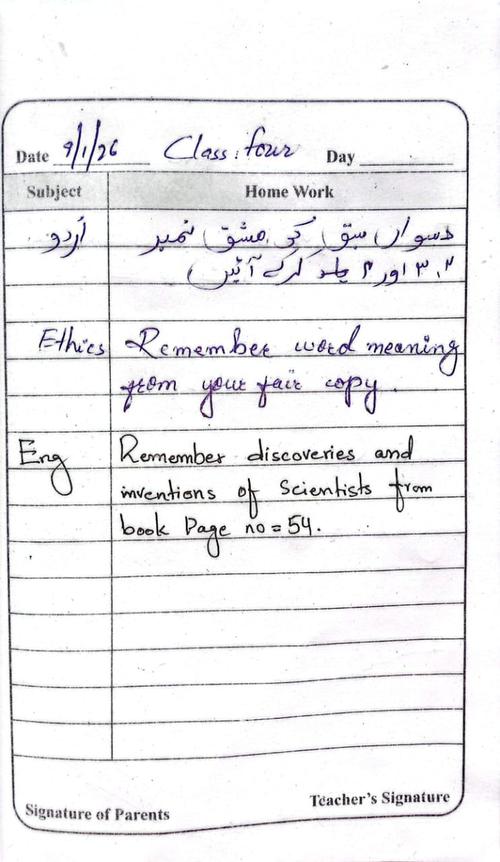 Date 9/1/26 Class: four Day
Subject Home Work
اُردو دسواں سبق کی مشق نمبر
۲، ۳ اور ۴ یاد کرکے آئیں
Ethics Remember word meaning
from your fair copy.
Eng Remember discoveries and
inventions of Scientists from
book Page no = 54.
Signature of Parents Teacher's Signature